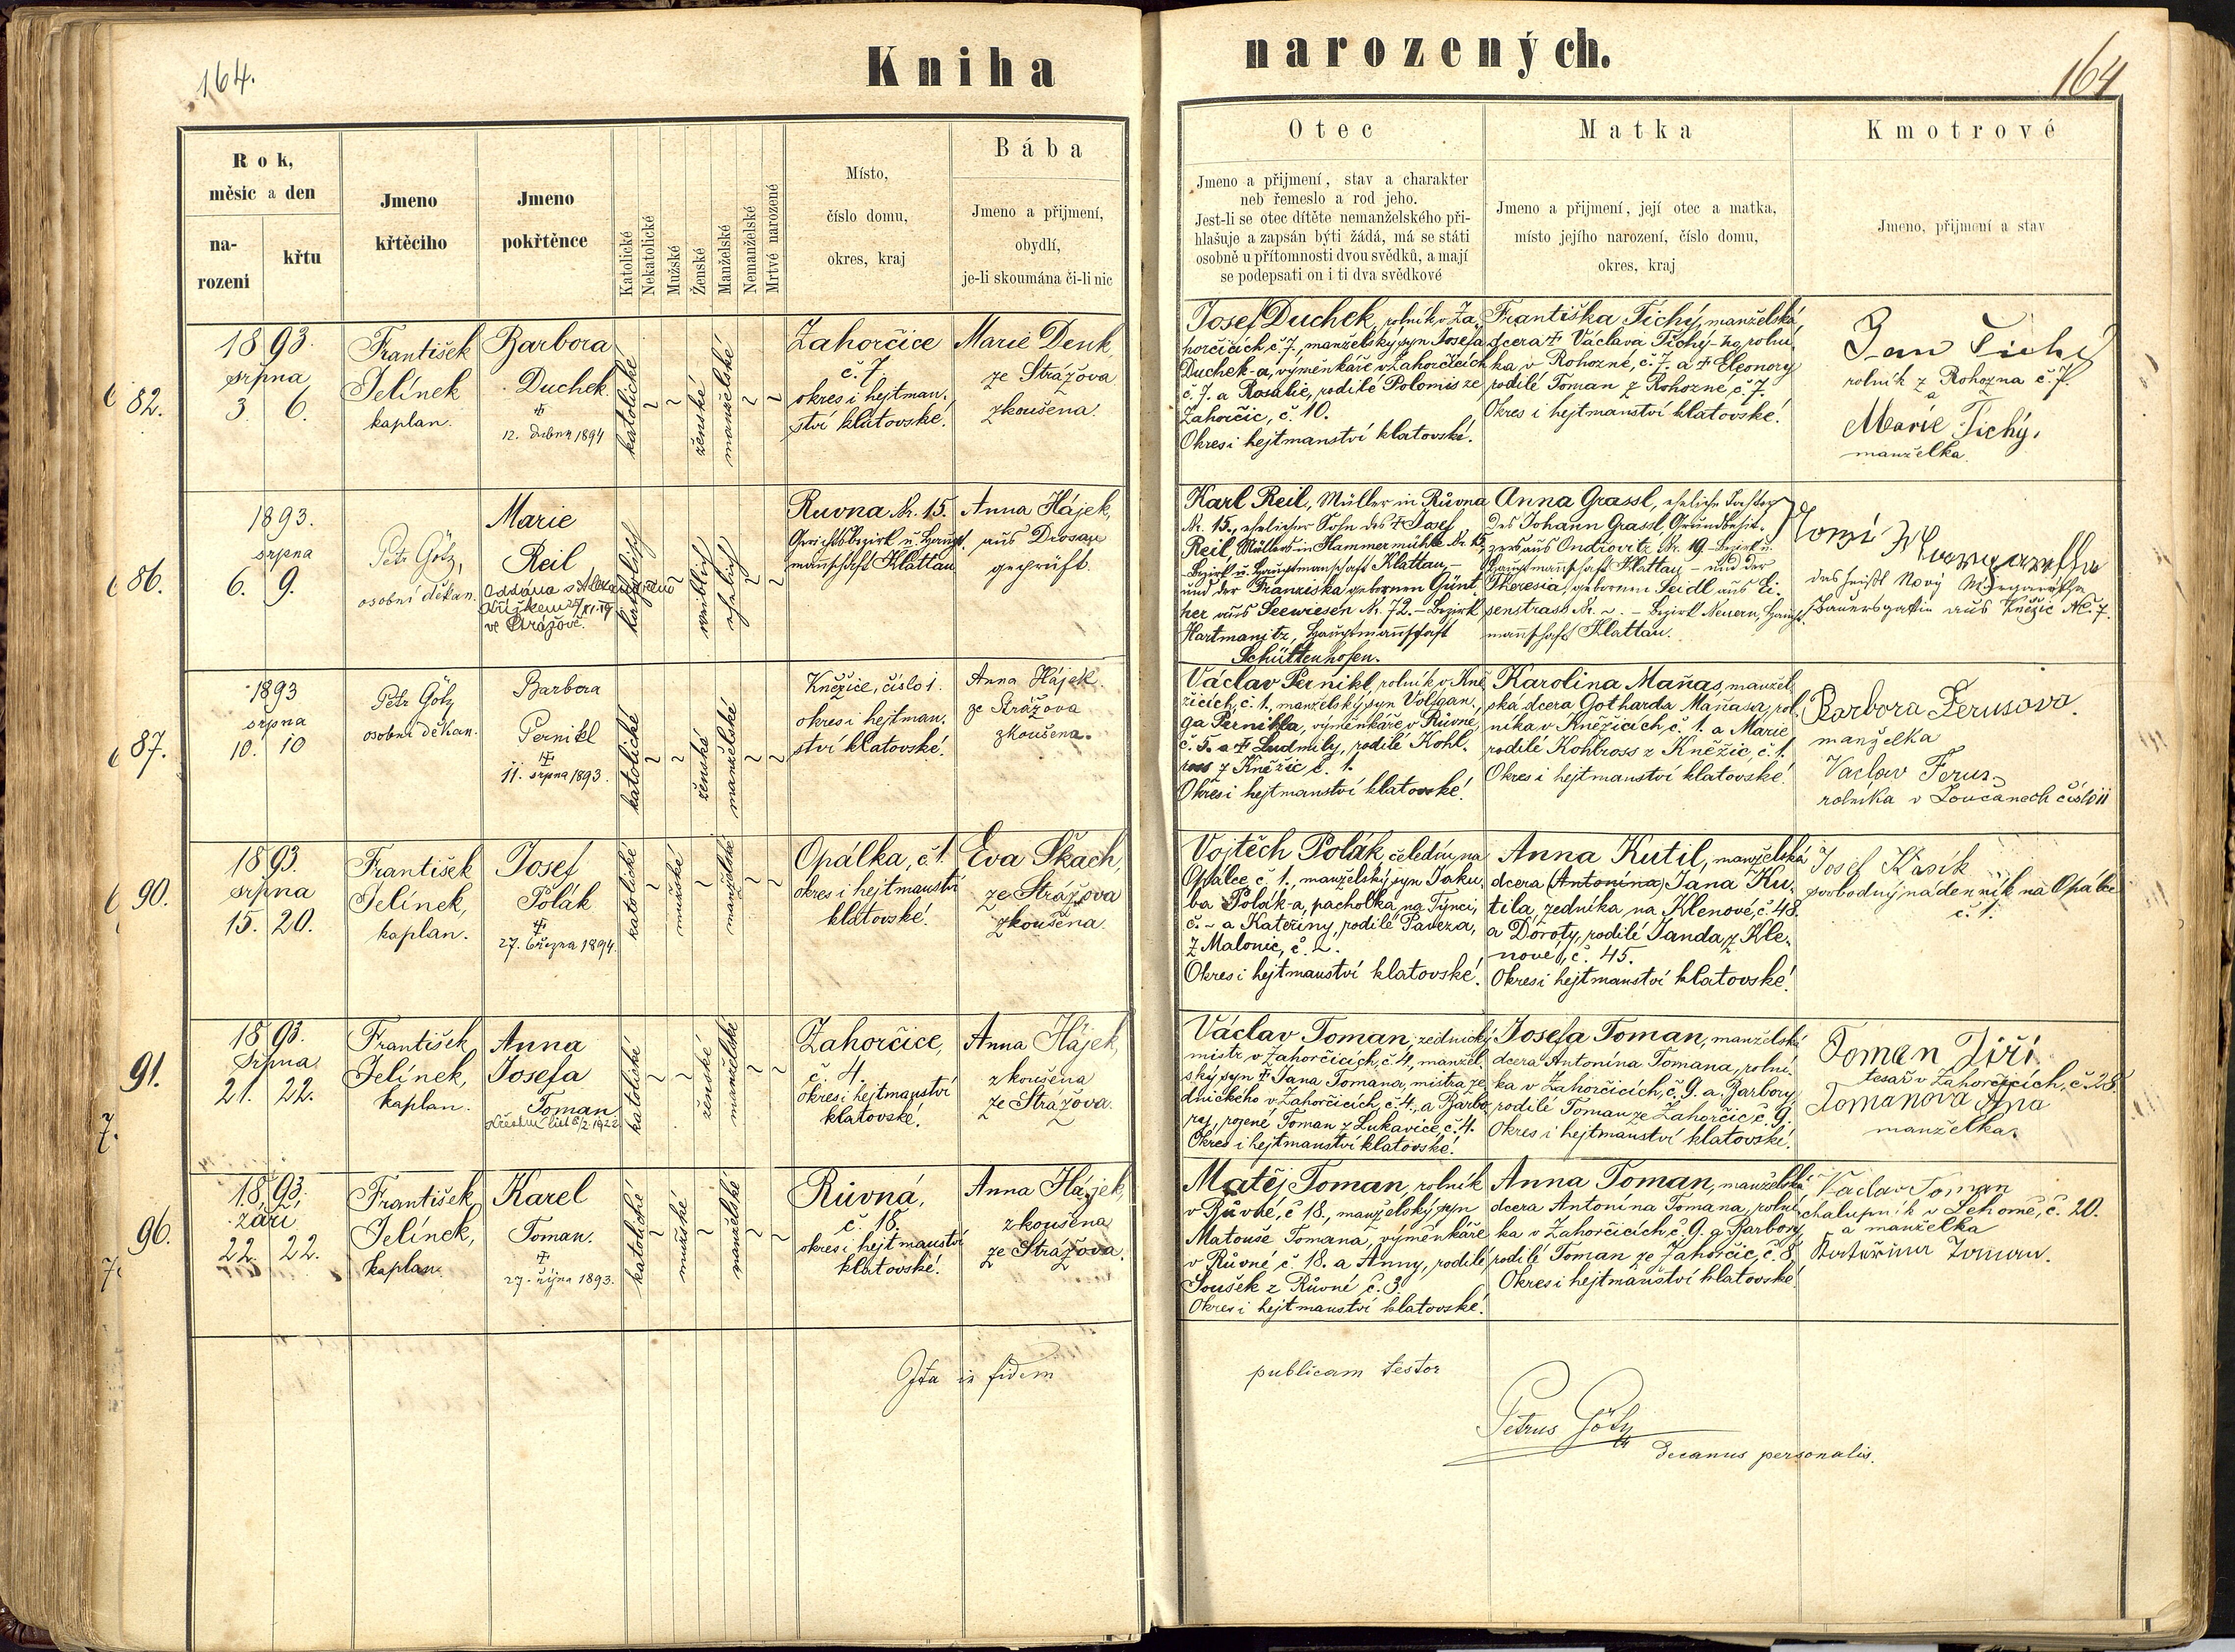 164.
Kniha
narozených.
164
Rok,
měsíc a den
na-
rozeni
křtu
Jmeno
křtěcího
Jmeno
pokřtěnce
Katolické
Nekatolické
Mužské
Ženské
Manželské
Nemanželské
Mrtvé narozené
Místo,
číslo domu,
okres, kraj
Bába
Jmeno a přijmení,
obydlí,
je-li skoumána či-li nic
Otec
Jmeno a přijmení, stav a charakter
neb řemeslo a rod jeho.
Jest-li se otec dítěte nemanželského při-
hlašuje a zapsán býti žádá, má se státi
osobně u přítomnosti dvou svědků, a mají
se podepsati on i ti dva svědkové
Matka
Jmeno a přijmení, její otec a matka,
místo jejího narození, číslo domu,
okres, kraj
Kmotrové
Jmeno, přijmení a stav
82.
1893.
srpna
3. 6.
František
Jelínek
kaplan.
Barbora
Duchek
12. dubna 1894
katolické
ženské
manželské
Zahorčice
č. 7.
okres i hejtman.
ství klatovské.
Marie Denk
ze Strážova
zkoušena.
Josef Duchek, rolník v Za-
horčicích, č. 7., manželský syn Josefa
Duchek-a, výměnkáře v Zahorčicích
č. 7. a Rosalie, rodilé Polonius ze
Zahorčic, č. 10.
Okres i hejtmanství klatovské.
Františka Tichý, manželská
dcera † Václava Tichý-ho, rolní-
ka v Rohozné, č. 7. a † Eleonory
rodilé Toman z Rohozné č. 7.
Okres i hejtmanství klatovské.
Jan Tichý
rolník z Rohozna č. 7.
a
Marie Tichý,
manželka
86.
1893.
srpna
6. 9.
Petr Götz,
osobní děkan.
Marie
Reil
ve Strážově.
katholisch
weiblich
ehelich
Ruvna Nr. 15.
Gerichtsbezirk u. Haupt-
mannschaft Klattau
Anna Hájek,
aus Drosau
geprüft.
Karl Reil, Müller in Růvna
Nr. 15., ehelicher Sohn des † Josef
Reil, Müllers in Hammermühle Nr. 15,
Bezirk u. Hauptmannschaft Klattau, –
und der Franziska gebornen Günt-
her aus Seewiesen Nr. 72. – Bezirk
Hartmanitz, Hauptmannschaft
Schüttenhofen.
Anna Grassl, eheliche Tochter
des Johann Grassl, Grundbesit-
zers aus Ondrovitz Nr. 19. – Bezirk u.
Hauptmannschaft Klattau – und der
Theresia, gebornen Seidl aus Ei-
senstrass Nr. ~. – Bezirk Neuern, Haupt-
mannschaft Klattau.
das heißt Nový Margaretha
Bauersgattin aus Kněžic No. 7.
87.
1893
srpna
10. 10
Petr Götz
osobní děkan.
Barbora
Pernikl
11. srpna 1893.
katolické
ženské
manželské
Kněžice, číslo 1.
okres i hejtman.
ství klatovské.
Anna Hájek
ze Strážova
zkoušena.
Václav Pernikl, rolník v Kně-
žicích, č. 1., manželský syn Volfgan-
ga Pernikla, výměnkáře v Růvné
č. 5. a † Ludmily, rodilé Kohl-
ross z Kněžic č. 1.
Okres i hejtmanství klatovské.
Karolina Maňas, manžel-
ská dcera Gotharda Maňasa, rol-
níka v Kněžicích, č. 1. a Marie
rodilé Kohlross z Kněžic, č. 1.
Okres i hejtmanství klatovské.
Barbora Ferusova.
manželka
Vaclav Ferus
rolníka v Loučanech číslo 11
90.
1893.
srpna
15. 20.
František
Jelínek,
kaplan.
Josef
Polák
27. března 1894.
katolické
mužské
manželské
Opálka, č. 1.
okres i hejtmanství
klatovské.
Eva Škach,
ze Strážova
zkoušena.
Vojtěch Polák, čeledín na
Opálce č. 1., manželský syn Jaku-
ba Polák-a, pacholka na Týnci,
č. ~ a Kateřiny, rodilé Paveza,
z Malonic, č. ~.
Okres i hejtmanství klatovské.
Anna Kutil, manželská
dcera (Antonína) Jana Ku-
tila, zedníka na Klenové, č. 48.
a Doroty, rodilé Janda, z Kle-
nové, č. 45.
Okres i hejtmanství klatovské.
Josef
svobodný nádenník na Opálce
č. 1.
91.
7.
1893.
Srpna
21. 22.
František
Jelínek,
kaplan.
Anna
Josefa
Toman
Křestní list 8/2 1922
katolické
ženské
manželské
Zahorčice,
č. 4.
okres i hejtmanství
klatovské.
Anna Hájek,
zkoušena
ze Strážova.
Václav Toman, zednický
mistr v Zahorčicích, č. 4., manžel-
ský syn † Jana Tomana, mistra ze-
dnického v Zahorčicích, č. 4., a Barbo-
ry, rozené Toman z Lukavice, č. 4.
Okres i hejtmanství klatovské.
Josefa Toman, manželská
dcera Antonína Tomana, rolní-
ka v Zahorčicích, č. 9. a Barbory,
rodilé Toman ze Zahorčic č. 9.
Okres i hejtmanství klatovské.
Toman Jiří
tesař v Zahorčicích, č. 28.
Tomanova
manželka.
96.
7.
1893.
září
22. 22.
František
Jelínek,
kaplan.
Karel
Toman.
27. října 1893.
katolické
mužské
manželské
Růvná,
č. 18.
okres i hejtmanství
klatovské.
Anna Hájek,
zkoušena
ze Strážova.
Matěj Toman, rolník
v Růvné, č. 18., manželský syn
Matouše Tomana, výměnkáře
v Růvné č. 18. a Anny, rodilé
Soušek z Růvné č. 3.
Okres i hejtmanství klatovské.
Anna Toman, manželská
dcera Antonína Tomana, rolní-
ka v Zahorčicích č. 9. a Barbory,
rodilé Toman ze Zahorčic, č. 8.
Okres i hejtmanství klatovské.
Vaclav Toman
chalupník v Lehomě, č. 20.
a manželka
Kateřina Toman.
Ita in fidem
publicam testor
Petrus Götz
Decanus personalis.